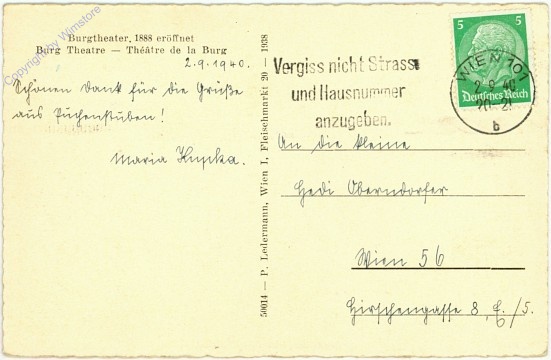 Copyright by Wimstore
Burgtheater, 1888 eröffnet
Burg Theatre — Théâtre de la Burg
2.9.1940.
Schönen Dank für die Grüße
aus Puchenstuben!
Maria Kupka.
50014 — P. Ledermann, Wien I, Fleischmarkt 20 — 1938
Vergiss nicht Strass
und Hausnummer
anzugeben.
5 5
Deutsches Reich
WIEN 101
2.9.40
20-21
b
An die kleine
Hedi Oberndorfer
Wien 56
Hirschengasse 8, /5.